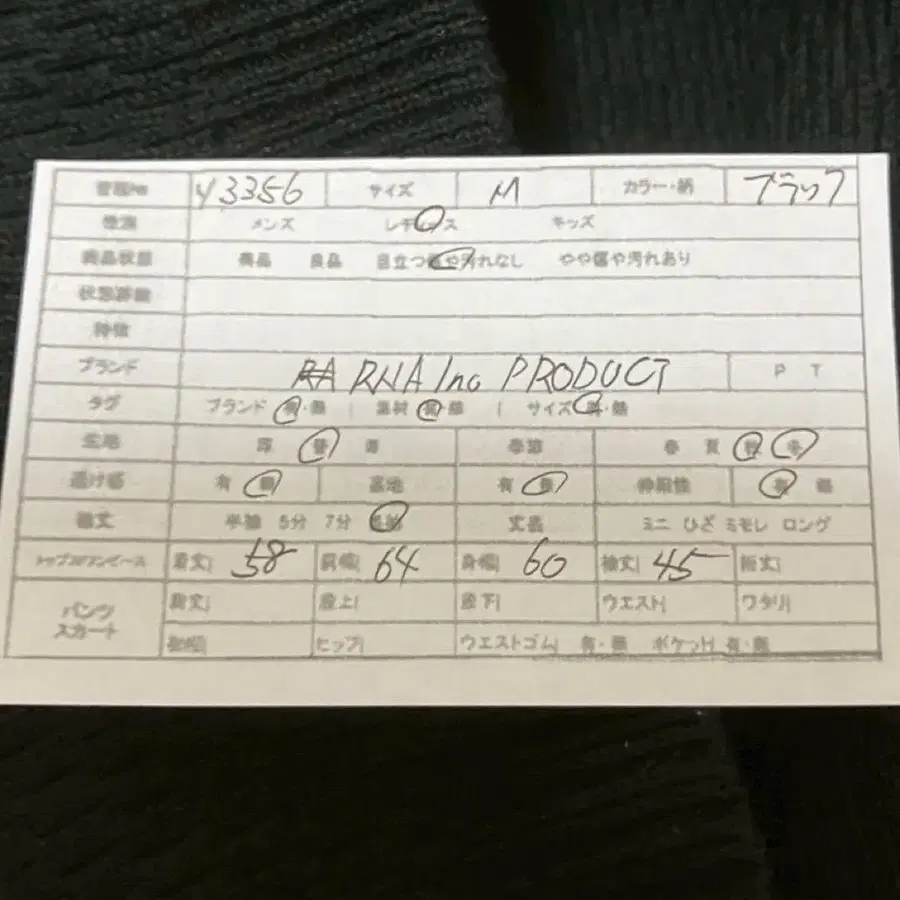 管理No y3356 サイズ M カラー・柄 ブラック
種別 メンズ レディース キッズ
商品状態 美品 良品 目立つ傷や汚れなし やや傷や汚れあり
状態詳細
特徴
ブランド RNA Inc PRODUCT P T
タグ ブランド 有・無 | 素材 有・無 | サイズ 有・無
生地 厚 普 薄 季節 春 夏 秋 冬
透け感 有 無 裏地 有 無 伸縮性 有 無
袖丈 半袖 5分 7分 長袖 丈長 ミニ ひざ ミモレ ロング
トップス/ワンピース 着丈| 58 肩幅| 64 身幅| 60 袖丈| 45 裄丈|
パンツ スカート 総丈| 股上| 股下| ウエスト| ワタリ|
裾幅| ヒップ| ウエストゴム| 有・無 ポケット| 有・無